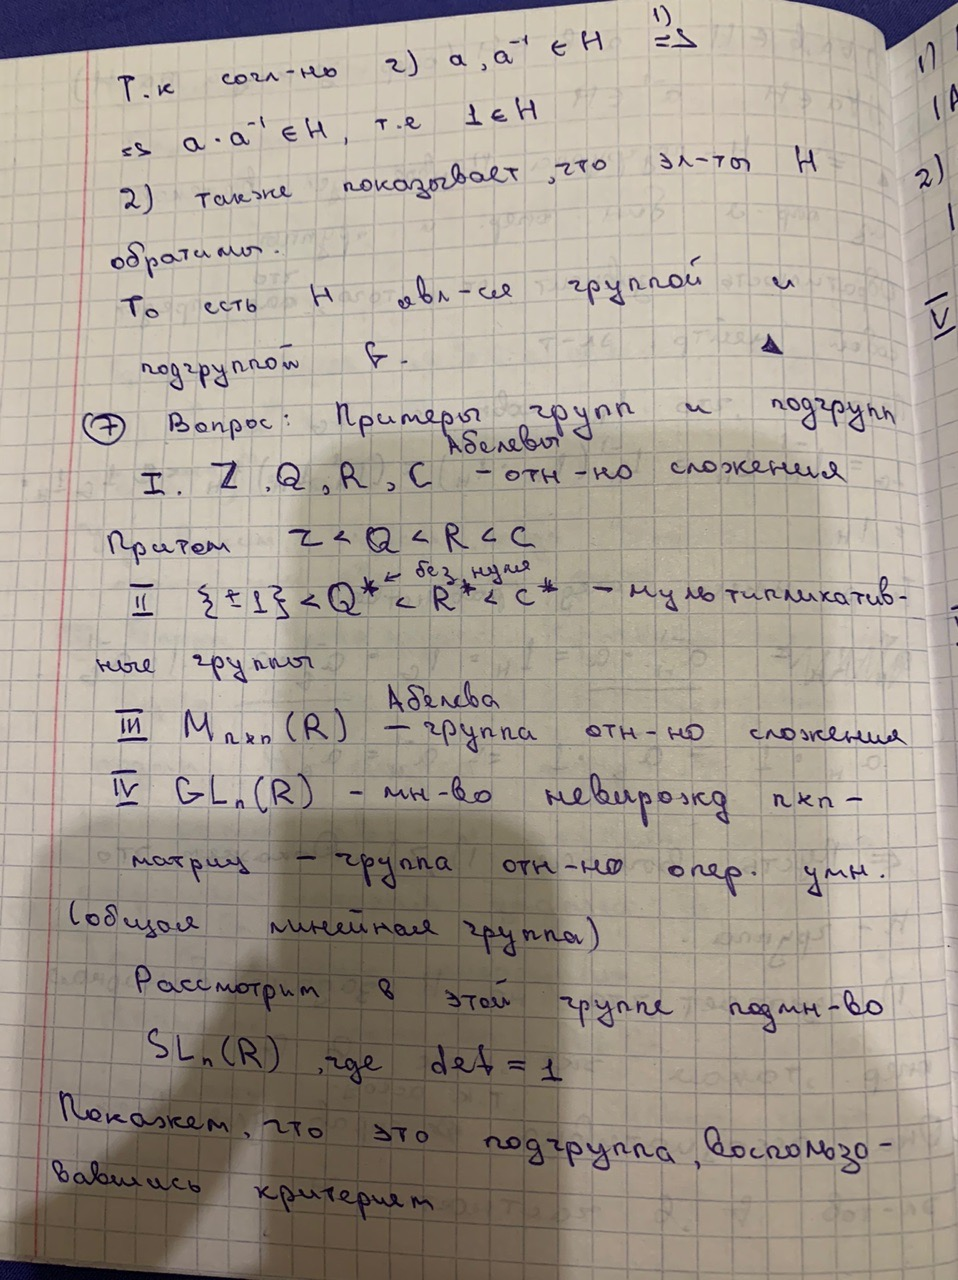 Т.к согл-но 2) a, a⁻¹ ∈ H 1) =>
=> a · a⁻¹ ∈ H, т.е 1 ∈ H
2) также показывает, что эл-ты H
обратимы.
То есть H явл-ся группой и
подгруппой G.
⑦ Вопрос: Примеры групп и подгрупп
Абелевы
I. Z, Q, R, C - отн-но сложения
Притом Z < Q < R < C
← без нуля
II {±1} < Q* < R* < C* - мультипликатив-
ные группы
Абелева
III Mₙₓₙ(R) - группа отн-но сложения
IV GLₙ(R) - мн-во невырожд nxn -
матриц - группа отн-но опер. умн.
(общая линейная группа)
Рассмотрим в этой группе подмн-во
SLₙ(R), где det = 1
Покажем, что это подгруппа, воспользо-
вавшись критерием
1)
2)
V